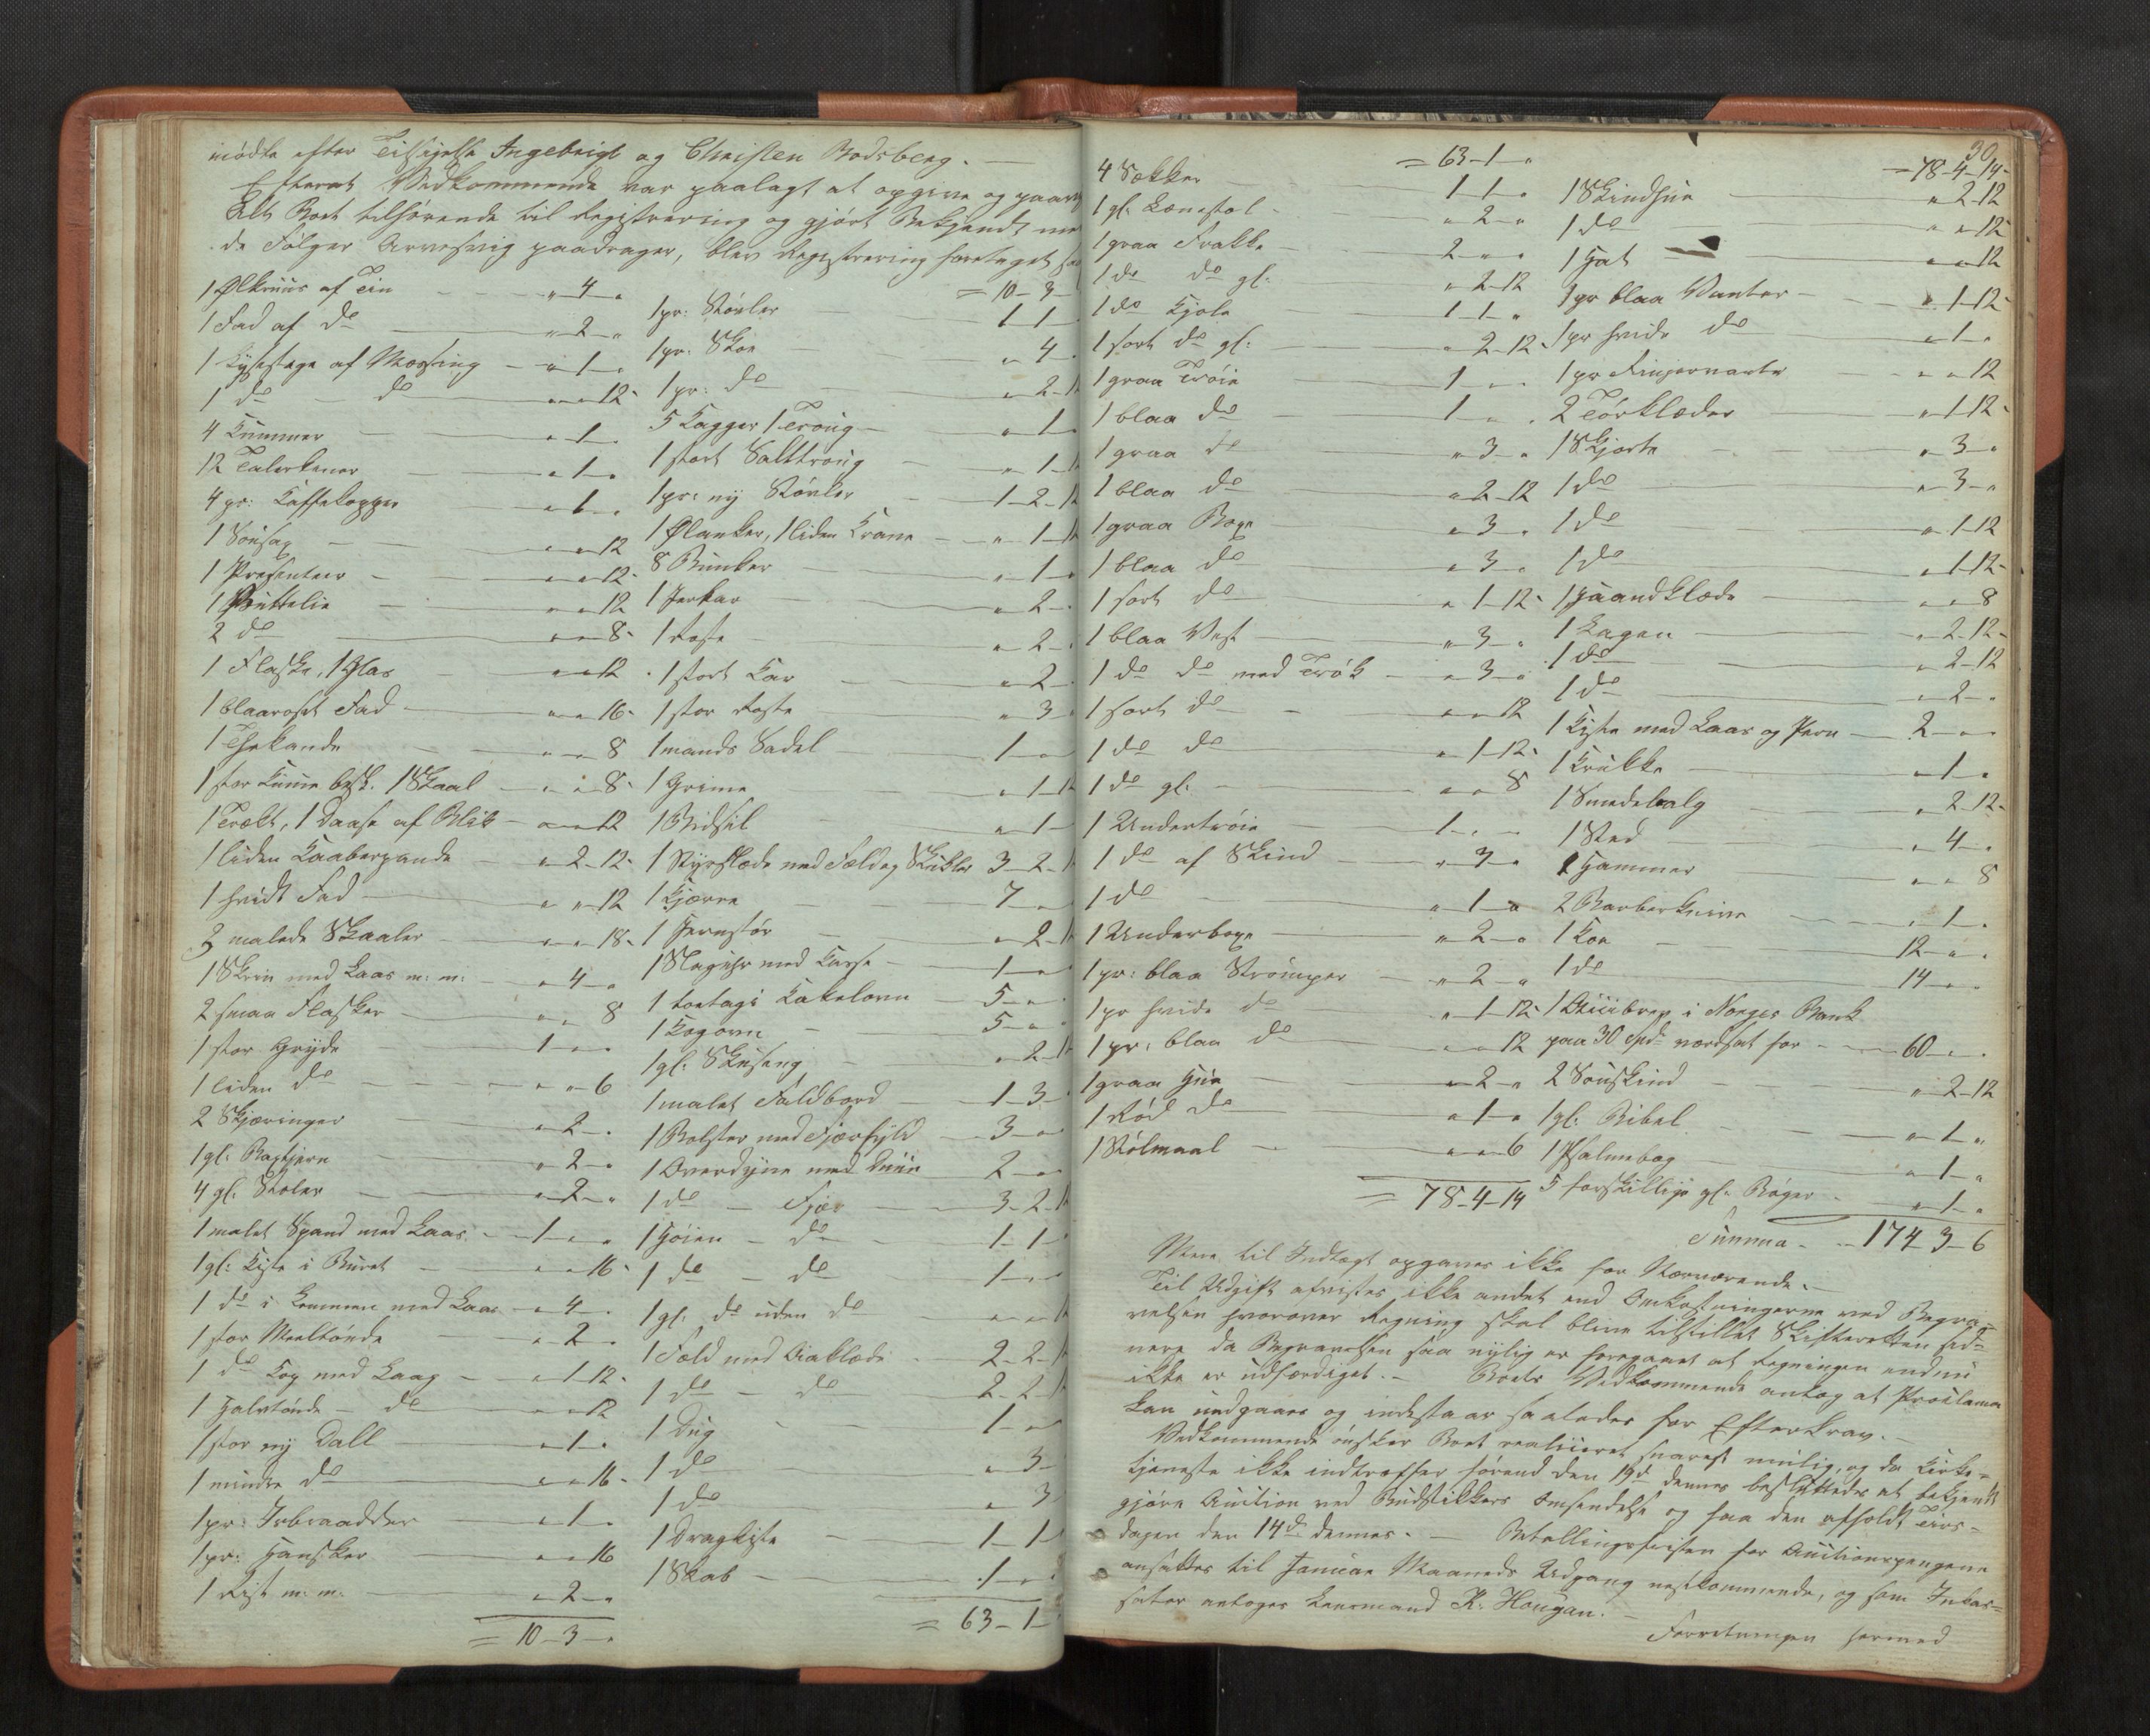 mødte efter Tilsigelse Ingebrigt og Christen Bodsberg. —
Efterat Vedkommende var paalagt at opgive og paavis
Alt Boet tilhørende til Registrering og gjort Bekjendt med
de Følger Arvesvig paadrager, blev Registrering foretaget saa
1 Ølkruus af Tin „ 4 „
1 Fad af do „ 2 „
1 Lysestage af Messing „ 1 „
1 do do „ „ 12
4 Kummer „ 1 „
12 Talerkener „ 1 „
4 pr: Kaffekopper „ 1 „
1 „ „ 12
1 Presenteer „ „ 12
1 Buttelie „ „ 12
2 do „ „ 8
1 Flaske, 1 Glas „ „ 12
1 blaaroset Fad „ „ 16
1 Thekande „ „ 8
1 stor Kumme besk. 1 Skaal „ „ 8
1 Trækt, 1 Daase af Blik „ „ 12
1 liden Kaaberpande „ 2 12
1 hvidt Fad „ „ 12
3 malede Skaaler „ „ 18
1 Skrin med Laas m: m: „ 4 „
2 smaa Flasker „ „ 8
1 stor Gryde 1 „ „
1 liden do „ „ 6
2 Skjæringer „ 2 „
1 gl: Bagstjern „ 2 „
4 gl: Stoler „ 2 „
1 malet Spand med Laas 1 „ „
1 gl: Kiste i Buret „ „ 16
1 do i Kammeret med Laas „ 4 „
1 stor Meeltønde „ 2 „
1 do Kog med Laag „ 1 12
1 Halvtønde do „ „ 12
1 stor ny Dall „ 1 „
1 mindre do „ „ 16
1 pr: Isbraadder „ 1 „
1 pr: Hansker „ „ 16
1 Rist m: m: „ 2 „
= 10 3 „
= 10 3
1 pr: Støvler 1 1
1 pr: Skoe „ 4
1 pr: do „ 2 1
5 Kagger 1 Troug „ 1
1 stort Salttroug „ 1 1
1 pr: ny Støvler 1 2 1
1 Ølanker, 1 liden Krane „ 1 1
8 Bunker „ 1
1 Jerkar „ 2
1 Roste „ 2
1 stort Kar „ 2
1 stor Roste „ 3
1 mands Sadel 1 „
1 Grime „ 1 1
1 Bidsel „ 1
1 Styrslæde med Fæld og Skikler 3 2 1
1 Kjærre 7 „
1 Jernstør „ 2 1
1 Slaguhr med Kasse 1 „
1 toetags Kakelovn 5 „
1 Kogovn 5 „
1 gl: Skuseng „ 2 1
1 malet Faldbord 1 3
1 Bolster med Fjærfyld 3 „
1 Overdyne med Duun 2 „
1 do Fjær 3 2 1
1 Høien do 1 1
1 do do 1 „
1 gl: do uden do „ „ 1
1 Fæld med Aaklæde 2 2 1
1 do do 2 2 1
1 Dug 1 „
1 do „ 3
1 do „ 3
1 Dragkiste 1 1
1 Skab 1 „
= 63 1
30
= 63 1 „
4 Sækker 1 1 „
1 gl: Lænestol „ 2 „
1 graa Frakke 2 „ „
1 do do gl: „ 2 12
1 do Kjole 1 1 „
1 sort do gl: „ 2 12
1 graa Trøie 1 „ „
1 blaa do 1 „ „
1 graa do „ 3 „
1 blaa do „ 2 12
1 graa Boxe „ 3 „
1 blaa do „ 3 „
1 sort do „ 1 12
1 blaa Vest „ 3 „
1 do do med Trøk „ 3 „
1 sort do „ „ 12
1 do do „ 1 12
1 do gl: „ „ 8
1 Undertrøie 1 „ „
1 do af Skind „ 3 „
1 do „ 1 „
1 Underboxe „ 2 „
1 pr: blaa Strømper „ 2 „
1 pr hvide do „ 1 12
1 pr: blaa do „ „ 12
1 graa Hue „ 2 „
1 Rød do „ 1 „
1 Stølmaal „ „ 6
= 78 4 14
= 78 4 14
1 Skindhue „ 2 12
1 do „ „ 12
1 Hat „ „ 12
1 pr blaa Vanter „ 1 12
1 pr hvide do „ 1 „
1 pr Fingervanter „ „ 12
2 Tørklæder „ 1 12
1 Skjorte „ 3 „
1 do „ 3 „
1 do „ 1 12
1 do „ 1 12
1 Haandklæde „ „ 8
1 Lagen „ 2 12
1 do „ 2 12
1 do „ 2 „
1 Kiste med Laas og Jern 2 „ „
1 Krukke „ 1 „
1 Smedebalg „ 2 12
1 Sted „ 4 „
1 Hammer „ „ 8
2 Barberknive „ 1 „
1 Koe 12 „ „
1 do 14 „ „
1 i Norges Bank
paa 30 Spd værdsat for 60 „ „
2 Souskind „ 2 12
1 gl: Bibel „ 1 „
1 Psalmebog „ 1 „
5 forskillige gl: Bøger „ 1 „
Summa 174 3 6
Mere til Indtægt opgaves ikke for Nærværende.
Til Udgift afvistes ikke andet end Omkostningerne ved Begra=
velsen hvorover Regning skal blive tilstillet Skifteretten sid=
nere da Begravelsen saa nylig er foregaaet at Regningen endnu
ikke er udfærdiget. — Boets Vedkommende antog at Proclama
kan undgaaes og indestaar saaledes for Efterkrav. —
Vedkommende ønsker Boet realiseret snarest mulig, og da Kirke=
tjeneste ikke indtræffer førend den 19de dennes besluttedes at bekjendt
gjøre Auction ved Budstikkers Omsendelse og saa den afholdt Tirs=
dagen den 14de dennes. — Betallingsfristen for Auctionspengene
ansattes til Januar Maaneds Udgang nestkommende, og som Inkas=
sator antoges Lensmand K. Hougan. —
Forretningen hermed